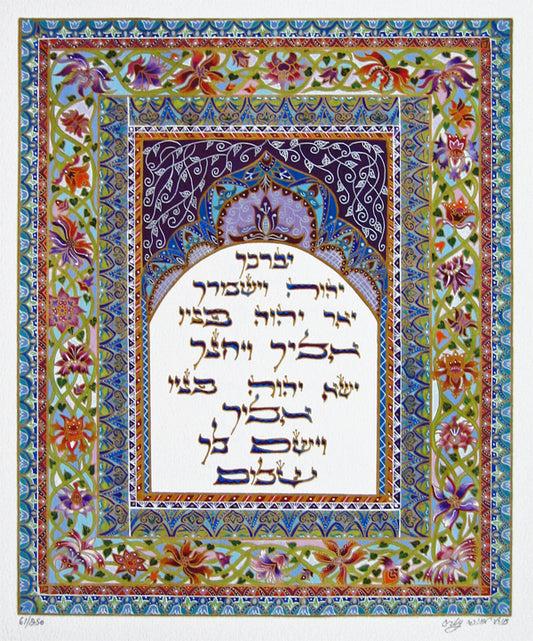 יברכך
יהוה וישמרך
יאר יהוה פניו
אליך ויחנך
ישא יהוה פניו
אליך
וישם לך
שלום
61/350